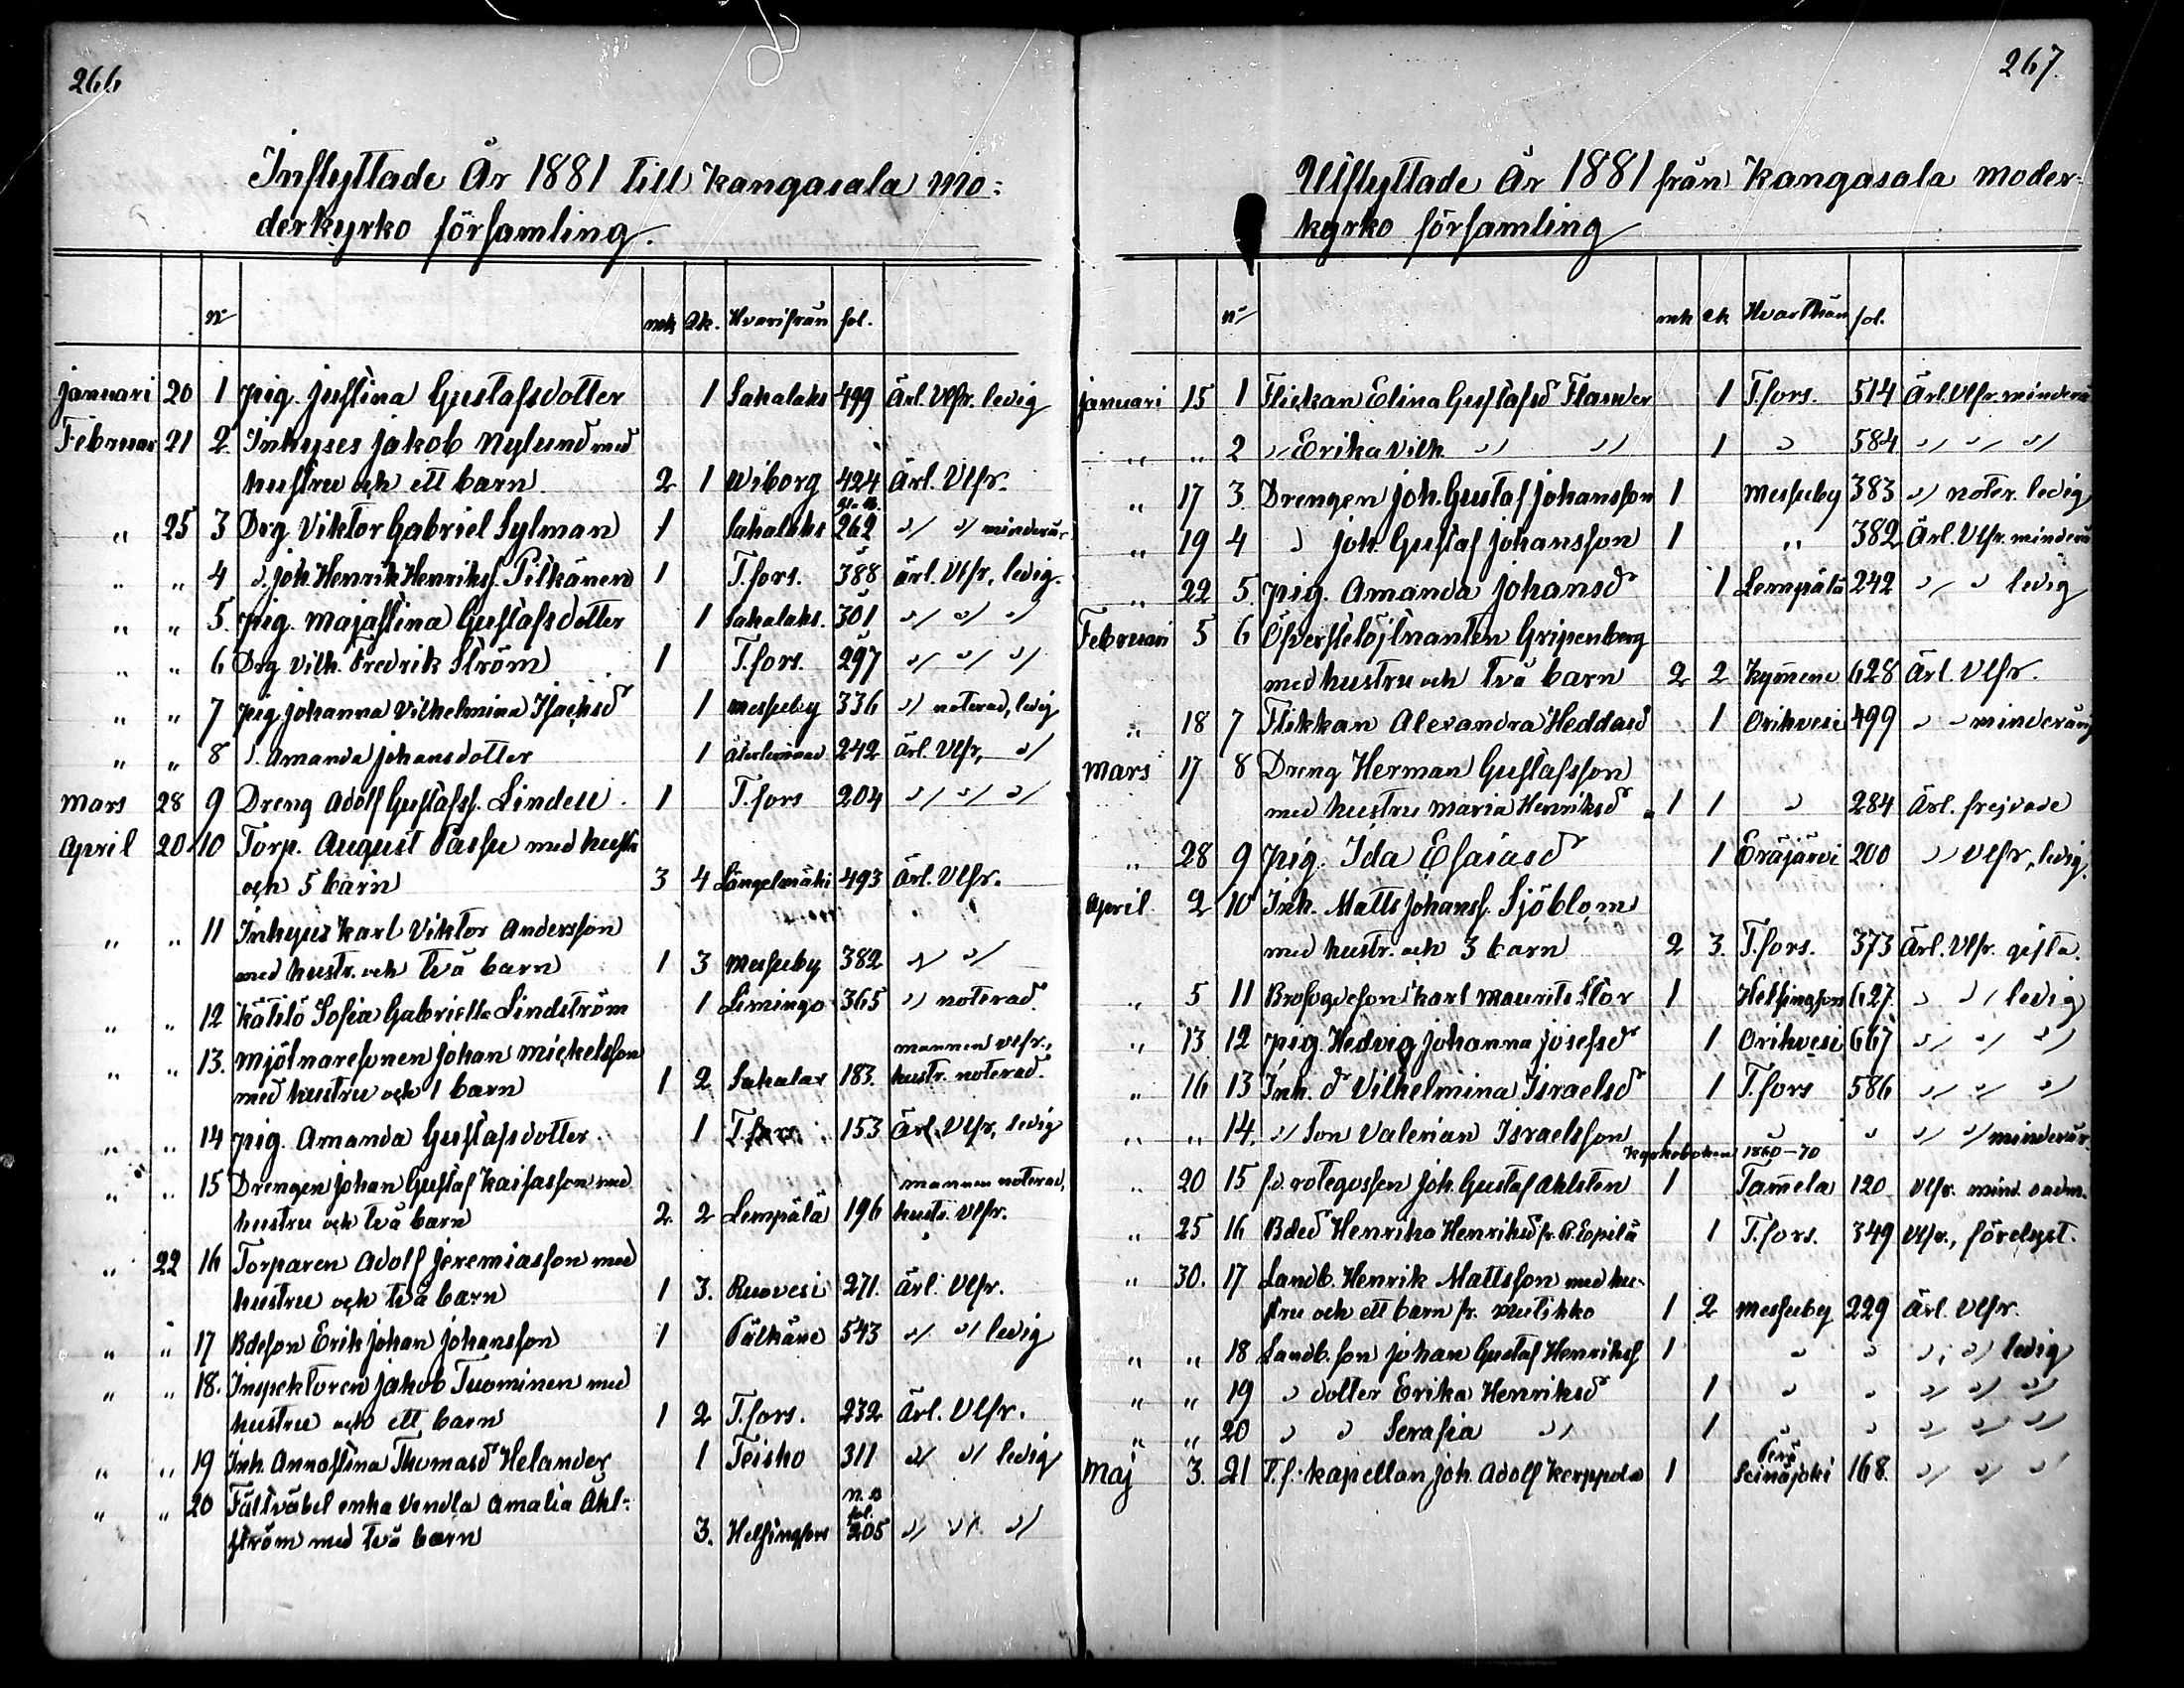 266
Inflyttade År 1881 till Kangasala mo-
derkyrko församling.
No mk qk. Hvarifrån fol.
Januari 20 1 Pig. Justina Gustafsdotter 1 Sahalaks 499 Ärl. Vlfr. ledig
Februar 21 2 Inhyses Jakob Nylund med
hustru och ett barn 2 1 Wiborg 424 Ärl. Vlfr.
" 25 3 Drg Viktor Gabriel Sylman 1 Sahalaks 262 " " minderår.
" " 4 " Joh. Henrik Henrikss. Pilkänen 1 T.fors. 388 ärl. Vlfr, ledig.
" " 5. Pig. Majastina Gustafsdotter 1 Sahalaks. 301 " " "
" " 6 Drg Vilh. Fredrik Ström 1 T.fors. 297 " " "
" " 7 Pig Johanna Vilhelmina Isachsd 1 Messuby 336 " noterad, ledig
" " 8 " Amanda Johansdotter 1 242 ärl. Vlfr, "
Mars 28 9 Dreng Adolf Gustafss. Lindell 1 T.fors 204 " " "
April 20 10 Torp. August Passu med hustr
och 5 barn 3 4 Längelmäki 493 Ärl. Vlfr.
" " 11 Inhyses Karl Viktor Andersson
med hustr. och två barn 1 3 Messuby 382 " "
" " 12 Kätilö Sofia Gabriella Lindström 1 Limingo 365 " noterad
" " 13. Mjölnaresonen Johan Mickelsson mannen vlfr.,
med hustru och 1 barn 1 2 Sahalax 183. hustr. noterad.
" " 14 Pig. Amanda Gustafsdotter 1 T.fors 153 Ärl. Vlfr, ledig
" " 15 Drengen Johan Gustaf Kaisasson med mannen noterad,
hustru och två barn 2. 2 Lempälä 196 hustr. Vlfr.
" 22 16 Torparen Adolf Jeremiasson med
hustru och två barn 1 3. Ruovesi 271. Ärl. Vlfr.
" " 17 Bdeson Erik Johan Johansson 1 Pälkäne 543 " " ledig
" " 18. Inspektoren Jakob Tuominen med
hustru och ett barn 1 2 T.fors. 232 Ärl. Vlfr.
" " 19 Inh. Annastina Thomasd Helander 1 Teisko 311 " " ledig
" " 20 Fältväbel enka Vendla Amalia Ahl-
ström med två barn 3. Helsingfors fol. 205 " " "
267.
Utflyttade År 1881 från Kangasala moder-
kyrko församling
No mk qk Hvarthän fol.
Januari 15 1 Flickan Elina Gustafsd Flander 1 T.fors. 514 Ärl. Vlfr. minderå
" " 2 " Erika Vilh. " " 1 " 584 " " "
" 17 3 Drengen Joh. Gustaf Johansson 1 Messuby 383 " noter. ledig
" 19 4 " Joh. Gustaf Johansson 1 " 382 Ärl. Vlfr. minderå
" 22 5. Pig. Amanda Johansd 1 Lempälä 242 " " ledig
Februari 5 6 Öfverstelöjtnanten Gripenberg
med hustru och två barn 2 2 Kymene 628 Ärl. Vlfr.
" 18 7 Flikkan Alexandra Heddasd 1 Orihvesi 499 " " minderårig
Mars 17 8 Dreng Herman Gustafsson
med hustru Maria Henriksd 1 1 " 284 Ärl. frejdade
" 28 9 Pig. Ida Esaiasd 1 Eräjärvi 200 " Vlfr, ledig.
April 2 10 Inh. Matts Johanss. Sjöblom
med hustr. och 3 barn 2 3. T.fors. 373 Ärl. Vlfr. gifta.
" 5 11 Brofogdeson Karl Maurits Stor 1 Helsingfors 627. " " ledig
" 13 12 Pig. Hedvig Johanna Josefsd 1 Orihvesi 667 " " "
" 16 13 Inh. d Vilhelmina Israelsd 1 T.fors 586 " " "
" " 14. " Son Valerian Israelsson 1 " " " " minderår.
Kyrkoboken 1860-70
" 20 15 fd. rotegossen Joh. Gustaf Ahlsten 1 Tam̄ela 120 Vlfr.
" 25 16 Bded Henrika Henriksd fr. P. Espilä 1 T.fors. 349 Vlfr., förelyst.
" 30. 17 Landb. Henrik Mattsson med hu-
stru och ett barn fr. Mutikko 1 2 Messuby 229 Ärl. Vlfr.
" " 18 Landb. son Johan Gustaf Henrikss 1 " " " " ledig
" " 19 " dotter Erika Henriksd 1 " " " " "
" " 20 " " Serafia " 1 " " " " "
Maj 3. 21 T.f. Kapellan Joh. Adolf Kerppola 1 Perä Seinäjoki 168. " " "